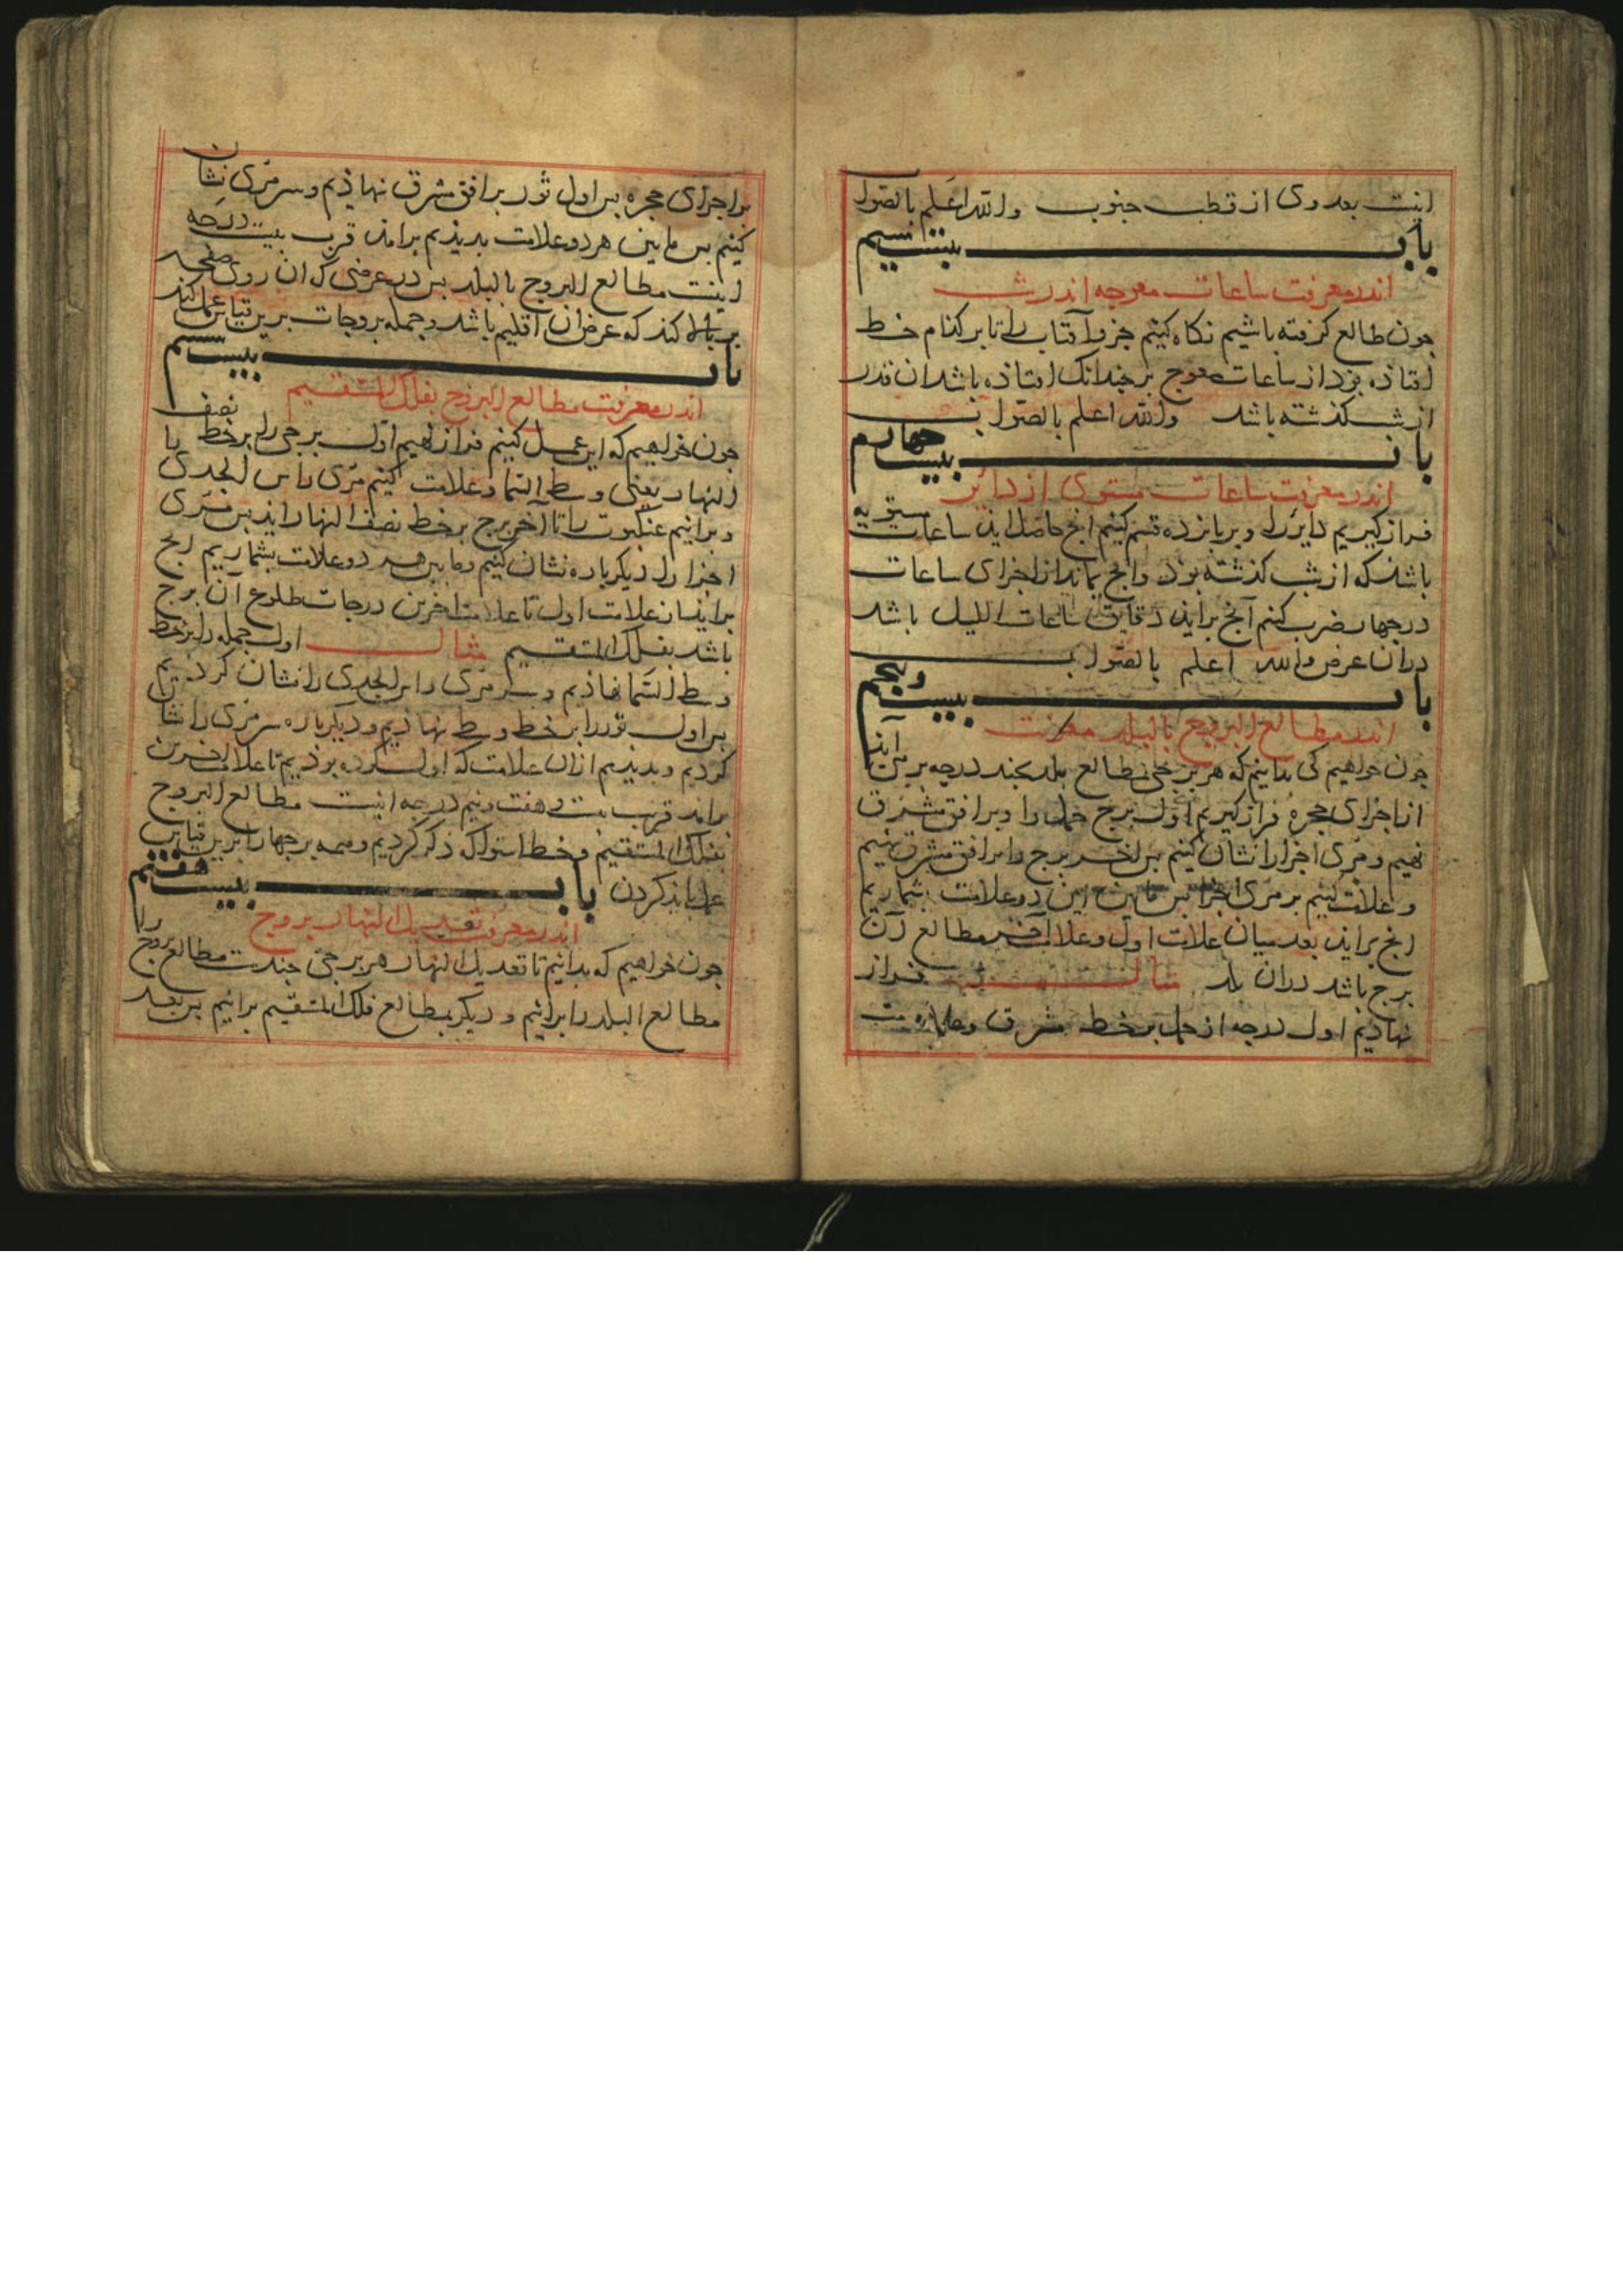 اینست بعد وی از قطب جنوب والله اعلم بالصواب
باب بیست سیم
اندر معرفت ساعات معوجه اندر شب
جون طالع کرفته باشیم نکاه کنیم جزو آفتاب را تا بر کذام خط
افتاذه بوذ از ساعات معوج بر جندانک افتاذه باشد ان قدر
از شب کذشته باشد والله اعلم بالصواب
باب بیست جهارم
اندر معرفت ساعات مستوی از دائر
فراز کیریم دایر را و بر بانزده قسم کنیم انج حاصل ایذ ساعات مستویه
باشذ که از شب کذشته بوذ وانج بماند از اجزای ساعات
در جهار ضرب کنم آنج برایذ دقایق ساعات اللیل باشد
دران عرض والله اعلم بالصواب
باب بیست وبنجم
اندر مطالع البروج بالبلد معرفت
جون خواهیم کی بدانیم که هر برجی بمطالع بلد بجند درجه بر می آیذ
از اجزای حجره فراز کیریم اول برج حمل را و بر افق مشرق
نهیم و مری اجزا را نشان کنیم بس اخر برج را بر افق مشرق نهیم
و علامت کنیم بر مری اجزا بس مابین این دو علامت بشماریم
انج برایذ بعد میان علامت اول و علامت آخر مطالع آن
برج باشد دران بلد مثالش فراز
نهاذیم اول درجه از حمل بر خط مشرق و علامت
بر اجزای حجره بس اول ثور بر افق مشرق نهاذیم و سر مری نشان
کنیم بس مابین هر دو علامت بدیذیم برامذ قرب بیست درجه
اینست مطالع البروج بالبلد بس در عرضی که ان روی صفحه
بر بالا کند که عرض ان اقلیم باشد و جمله بروجات برین قیاس عمل کند
باب بیست ششم
اندر معرفت مطالع البروج بفلک المستقیم
جون خواهیم که این عمل کنیم فراز نهیم اول برجی را بر خط نصف
النهار یعنی وسط السما و علامت کنیم مری راس الجدی
و برانیم عنکبوت را تا اخر برج بر خط نصف النهار ایذ بس مری
اجزا را دیکرباره نشان کنیم و مابین هر دو علامت بشماریم انج
برایذ از علامت اول تا علامت اخرین درجات طلوع آن برج
باشد بفلک المستقیم مثال اول حمل را بر خط
وسط السما نهاذیم و سر مری راس الجدی را نشان کردیم
بس اول ثور را بر خط وسط نهاذیم و دیکرباره سر مری را نشان
کردیم و بدیذیم ازان علامت که اول کرده بوذیم تا علامت اخرین
برامد قرب بیست و هفت و نیم درجه اینست مطالع البروج
بفلک المستقیم و خط استوا که ذکر کردیم و همه برجها را برین قیاس
عمل بایذ کردن باب بیست هفتم
اندر معرفت تعدیل النهار بروج
جون خواهیم که بدانیم تا تعدیل النهار هر برجی جندست مطالع بروج را
مطالع البلد را برانیم و دیکر بمطالع فلک المستقیم برانیم بس بعد